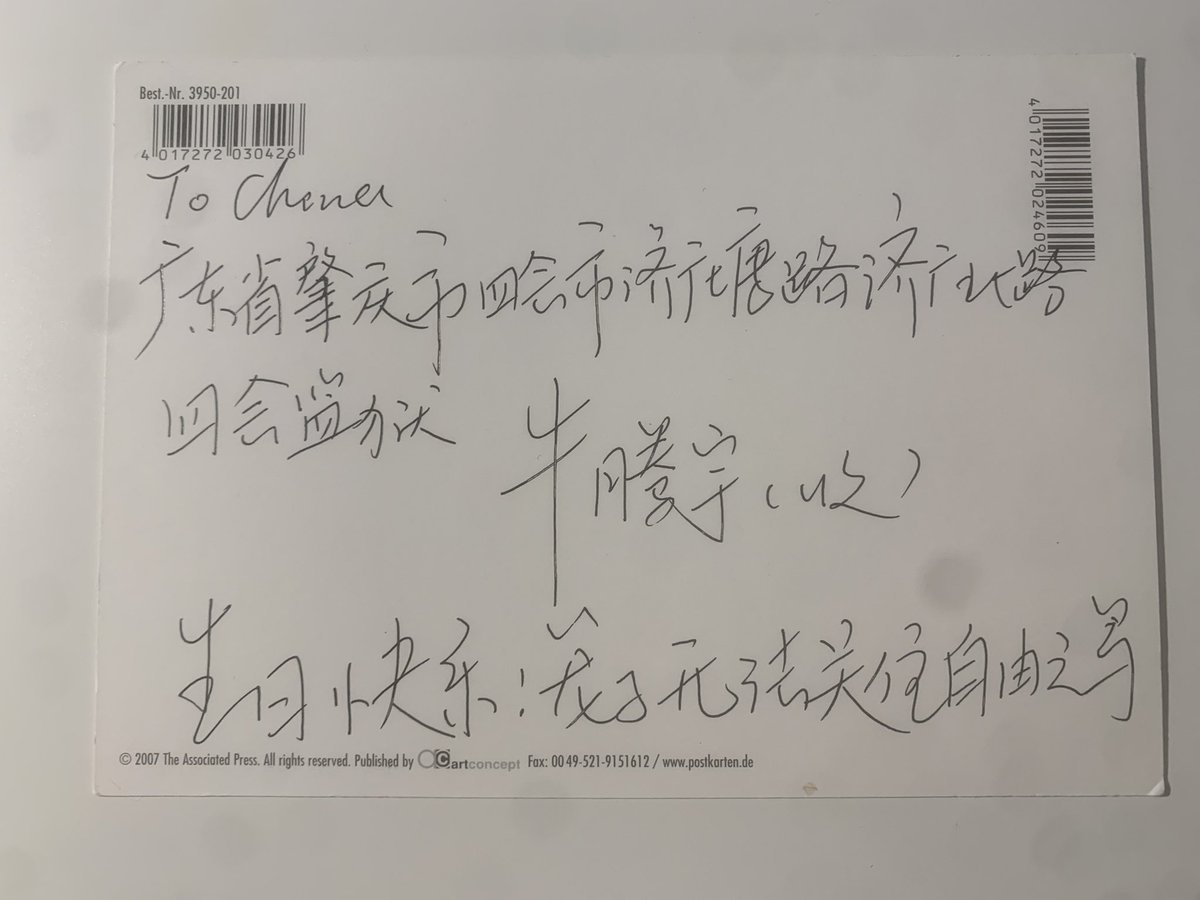 Best.-Nr. 3950-201
4 017272 030426
4 017272 024609
To China
广东省肇庆市四会市济广塘路济广北路
四会监狱
牛腾宇（收）
生日快乐！笼子无法关住自由之鸟
© 2007 The Associated Press. All rights reserved. Published by artconcept Fax: 00 49-521-9151612 / www.postkarten.de